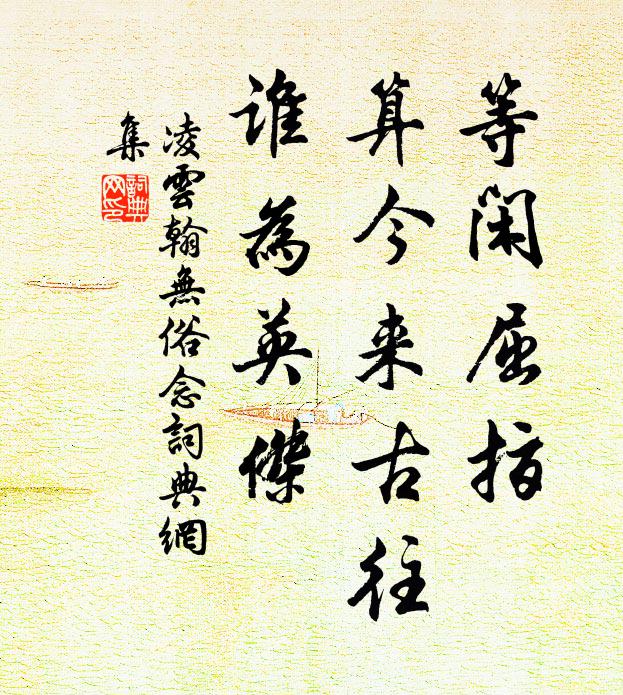 等閑屈指
算今来古往
誰為英傑
凌雲翰無俗念詞典網
集
詞典
网印